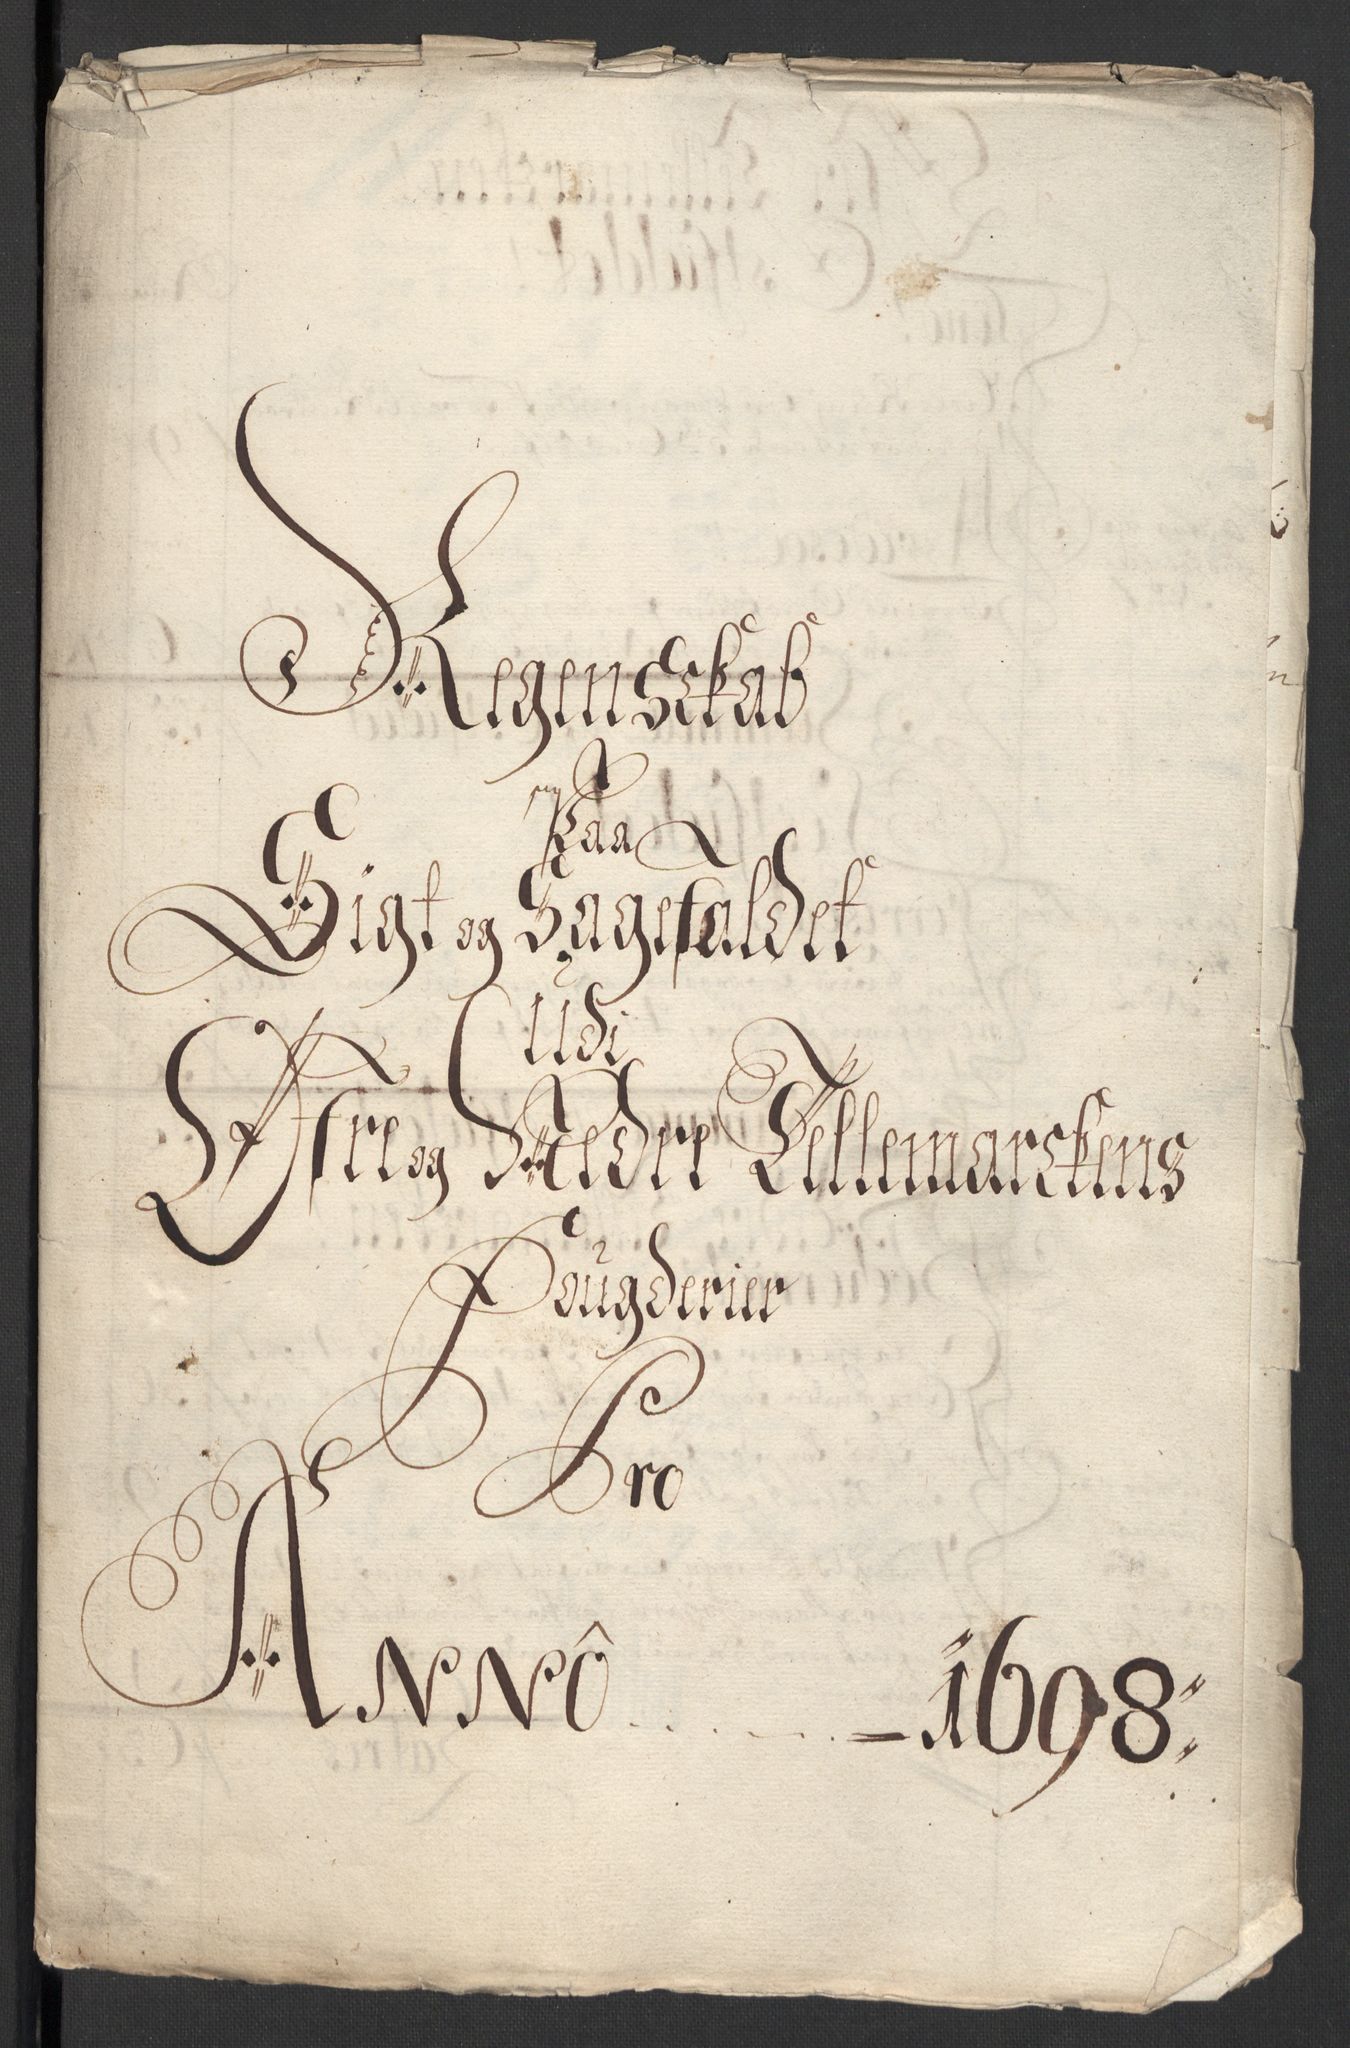 Regenskab
Paa
Sigt og Sagefaldet
Udi
Øfre og Nedre Tellemarckens
Fougderier
Pro
ANNÔ - 1698: